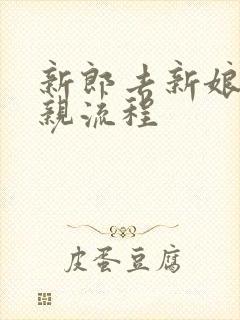 新郎去新娘
親流程
皮蛋豆腐